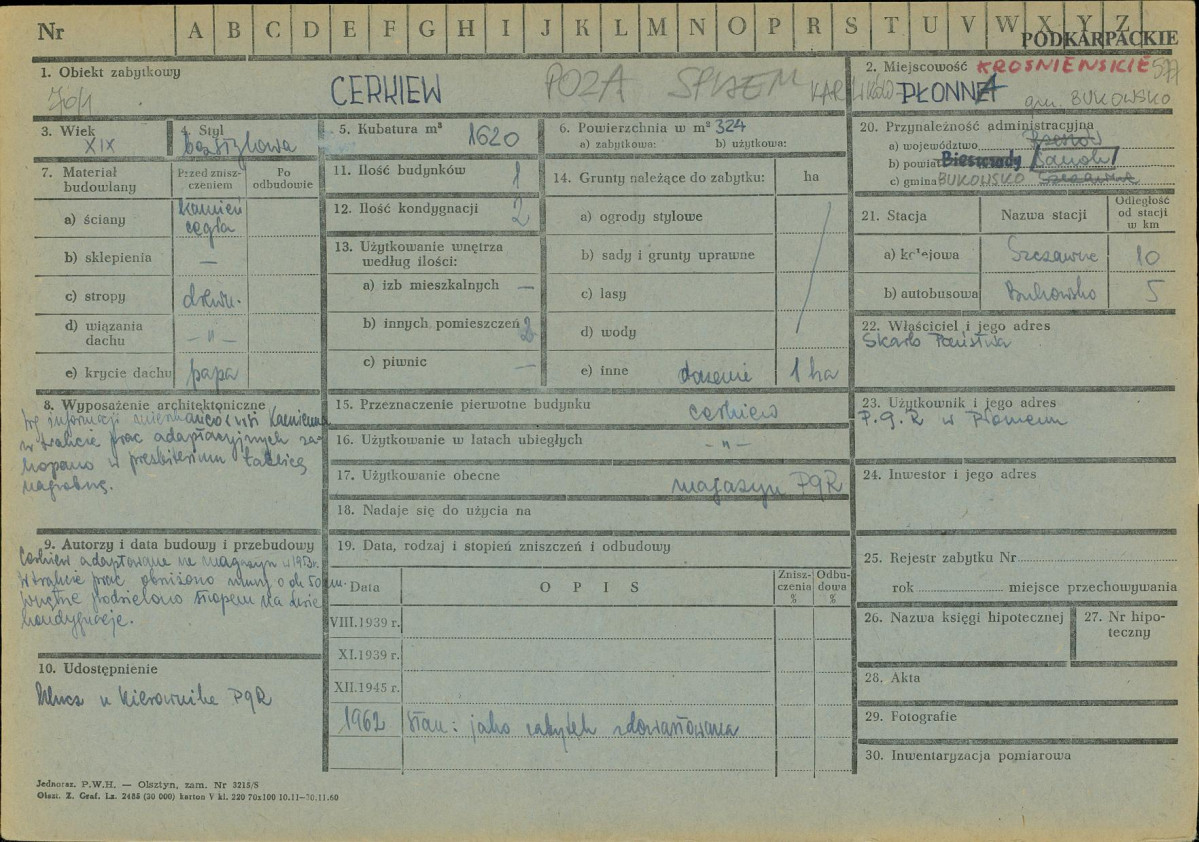 Nr A B C D E F G H I J K L M N O P R S T U V W X Y Z
PODKARPACKIE
1. Obiekt zabytkowy
CERKIEW POZA SPISEM
2. Miejscowość KROŚNIEŃSKIE 577
KARLIKÓW- PŁONNA gm. BUKOWSKO
3. Wiek
XIX
4. Styl
bezstylowa
5. Kubatura m³ 1620
6. Powierzchnia w m² 324
a) zabytkowa: b) użytkowa:
7. Materiał budowlany
Przed zniszczeniem
Po odbudowie
a) ściany kamień cegła
b) sklepienia —
c) stropy drewn.
d) wiązania dachu — " —
e) krycie dachu papa
8. Wyposażenie architektoniczne
Wg informacji mieszkańców wsi Kamienne
w trakcie prac adaptacyjnych za-
kopano w prezbiterium tablicę
nagrobną.
9. Autorzy i data budowy i przebudowy
Cerkiew adaptowana na magazyn w 1953r.
W trakcie prac obniżono mury o ok 50 cm.
wnętrze podzielono stropem na dwie
kondygnacje.
10. Udostępnienie
Klucz u kierownika PGR
11. Ilość budynków 1
12. Ilość kondygnacji 2
13. Użytkowanie wnętrza według ilości:
a) izb mieszkalnych —
b) innych pomieszczeń 2
c) piwnic —
14. Grunty należące do zabytku: ha
a) ogrody stylowe
b) sady i grunty uprawne
c) lasy
d) wody
e) inne 1 ha
15. Przeznaczenie pierwotne budynku cerkiew
16. Użytkowanie w latach ubiegłych - " -
17. Użytkowanie obecne magazyn PGR
18. Nadaje się do użycia na
19. Data, rodzaj i stopień zniszczeń i odbudowy
Data O P I S Zniszczenia % Odbudowa %
VIII.1939 r.
XI.1939 r.
XII.1945 r.
1962 Stan: jako zabytek zdewastowana
20. Przynależność administracyjna
a) województwo Rzeszów
b) powiat Bieszczady Sanok
c) gmina BUKOWSKO Szczawne
21. Stacja Nazwa stacji Odległość od stacji w km
a) kolejowa Szczawne 10
b) autobusowa Bukowsko 5
22. Właściciel i jego adres
Skarb Państwa
23. Użytkownik i jego adres
P.G.R w Płonnem
24. Inwestor i jego adres
25. Rejestr zabytku Nr
rok miejsce przechowywania
26. Nazwa księgi hipotecznej
27. Nr hipoteczny
28. Akta
29. Fotografie
30. Inwentaryzacja pomiarowa
Jednoraz. P.W.H. — Olsztyn, zam. Nr 3215/S
Olszt. Z. Graf. Lz. 2485 (30 000) karton V kl. 220 70x100 10.11—30.11.60